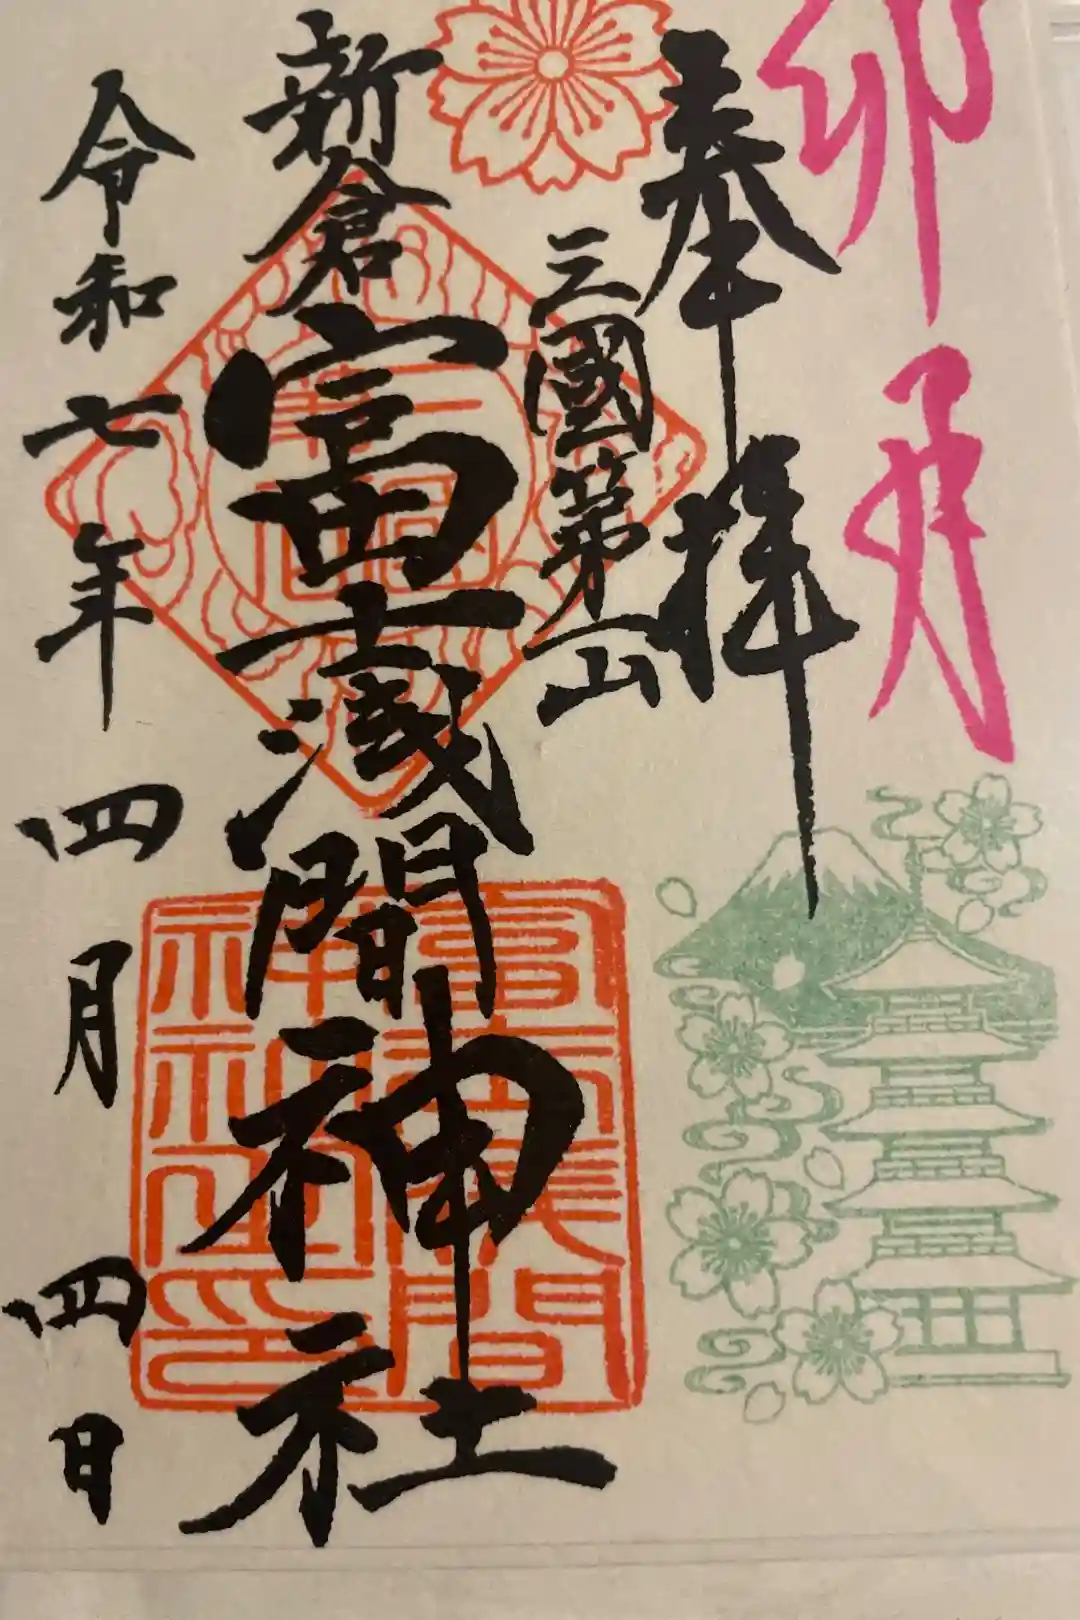 卯月
奉拝
三國第一山
新倉富士浅間神社
令和七年四月四日